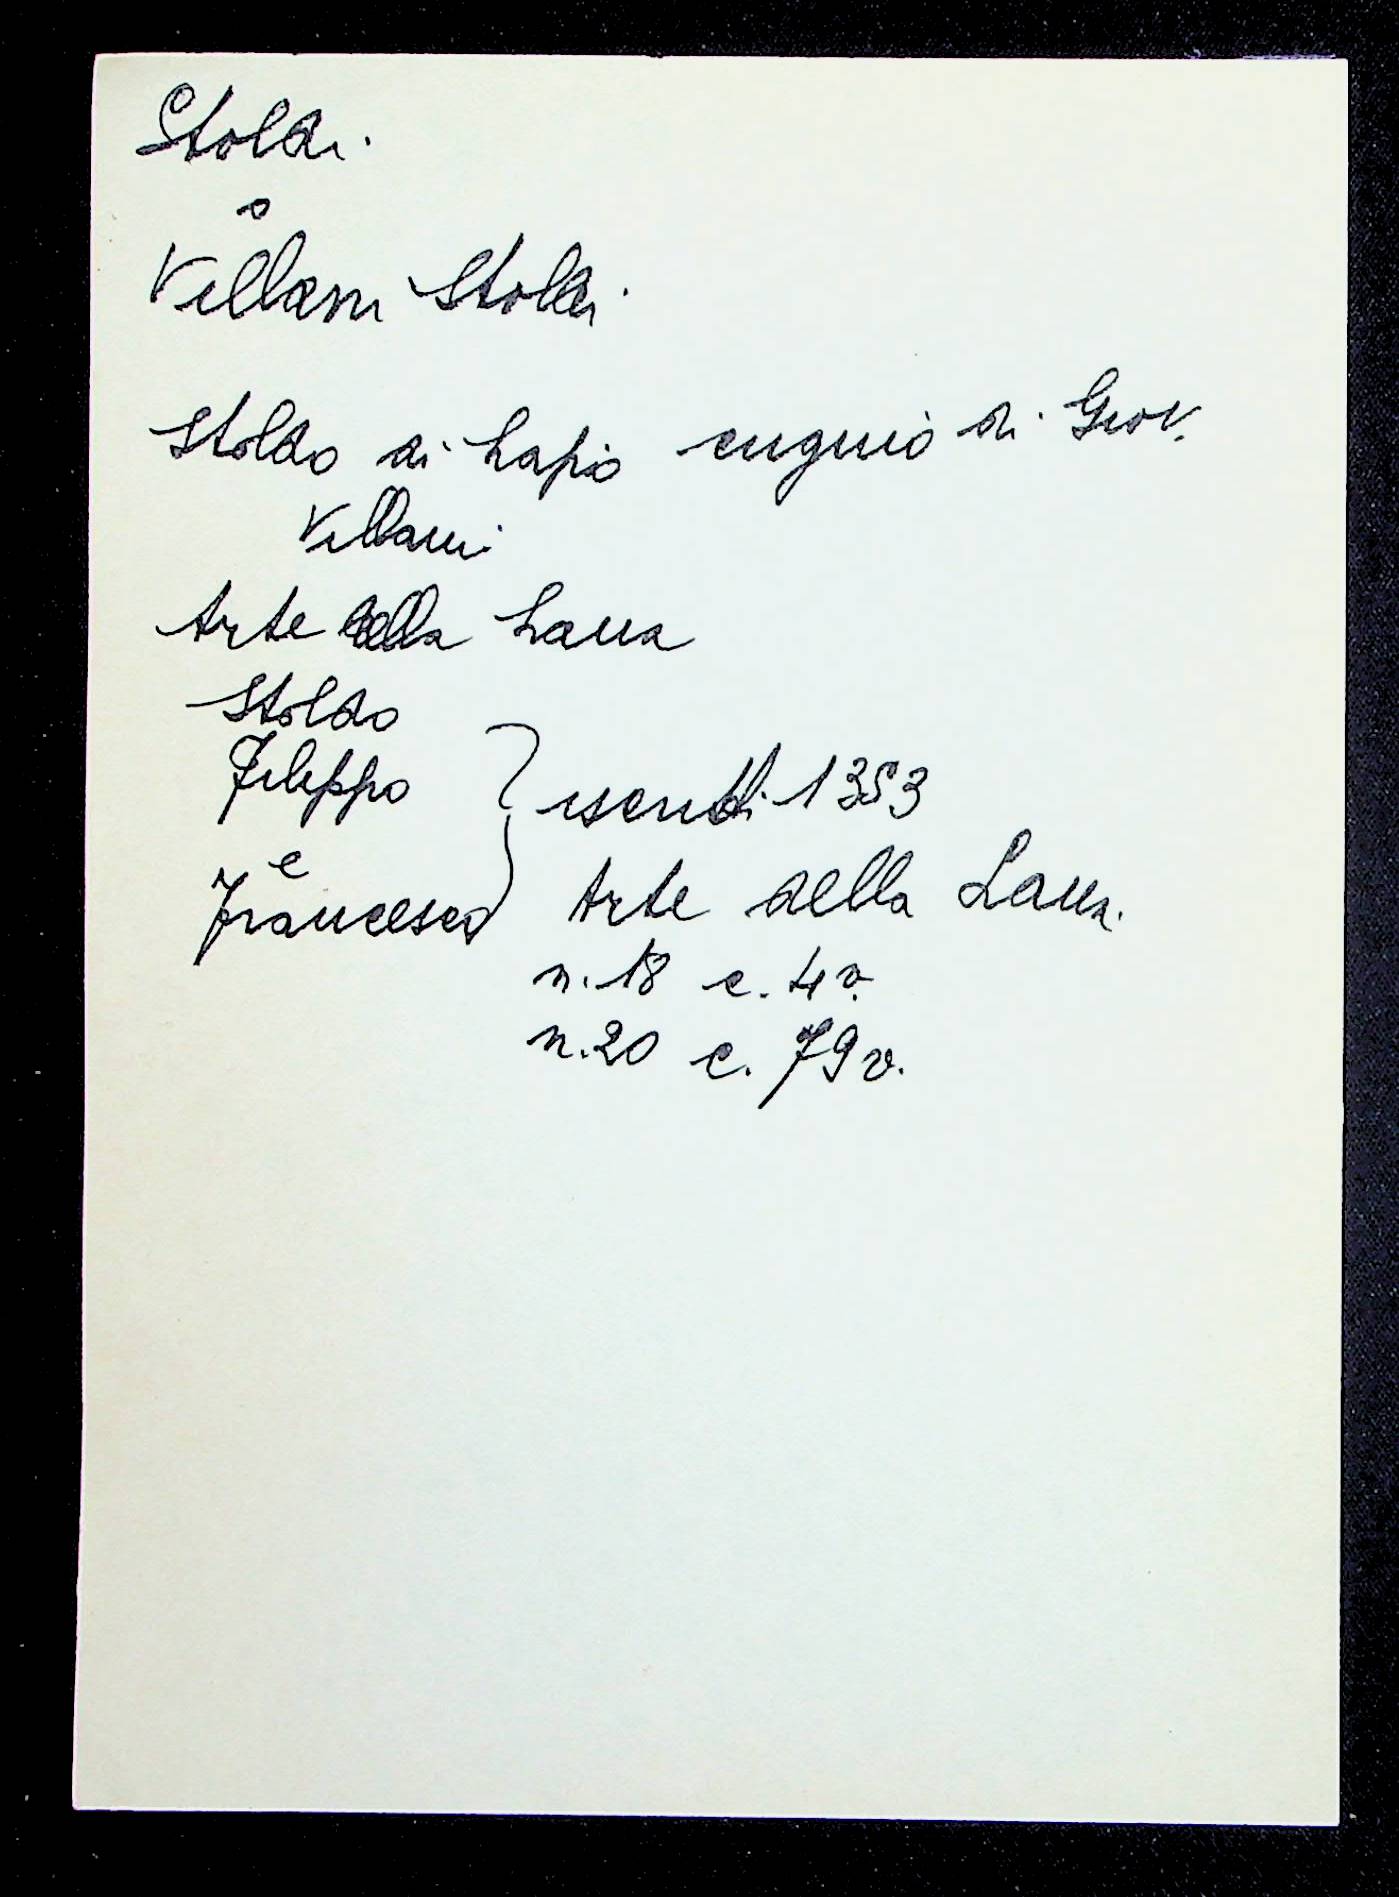 Stoldi.
o
Villani Stoldi.
Stoldo di Lapo cugino di Giov.
Villani
Arte della Lana
Stoldo
Filippo
e
Francesco } iscritti 1353
Arte della Lana.
n. 18 c. 4 v.
n. 20 c. 79 v.